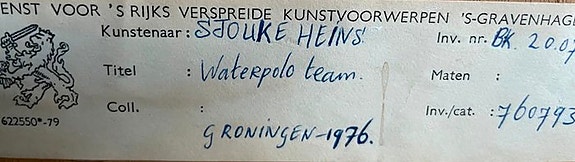 ENST VOOR 'S RIJKS VERSPREIDE KUNSTVOORWERPEN 'S-GRAVENHAGE
Kunstenaar : SJOUKE HEINS. Inv. nr. BK. 20.07
Titel : Waterpolo team. Maten :
Coll. : Inv./cat. : 760793
622550*-79
GRONINGEN-1976.